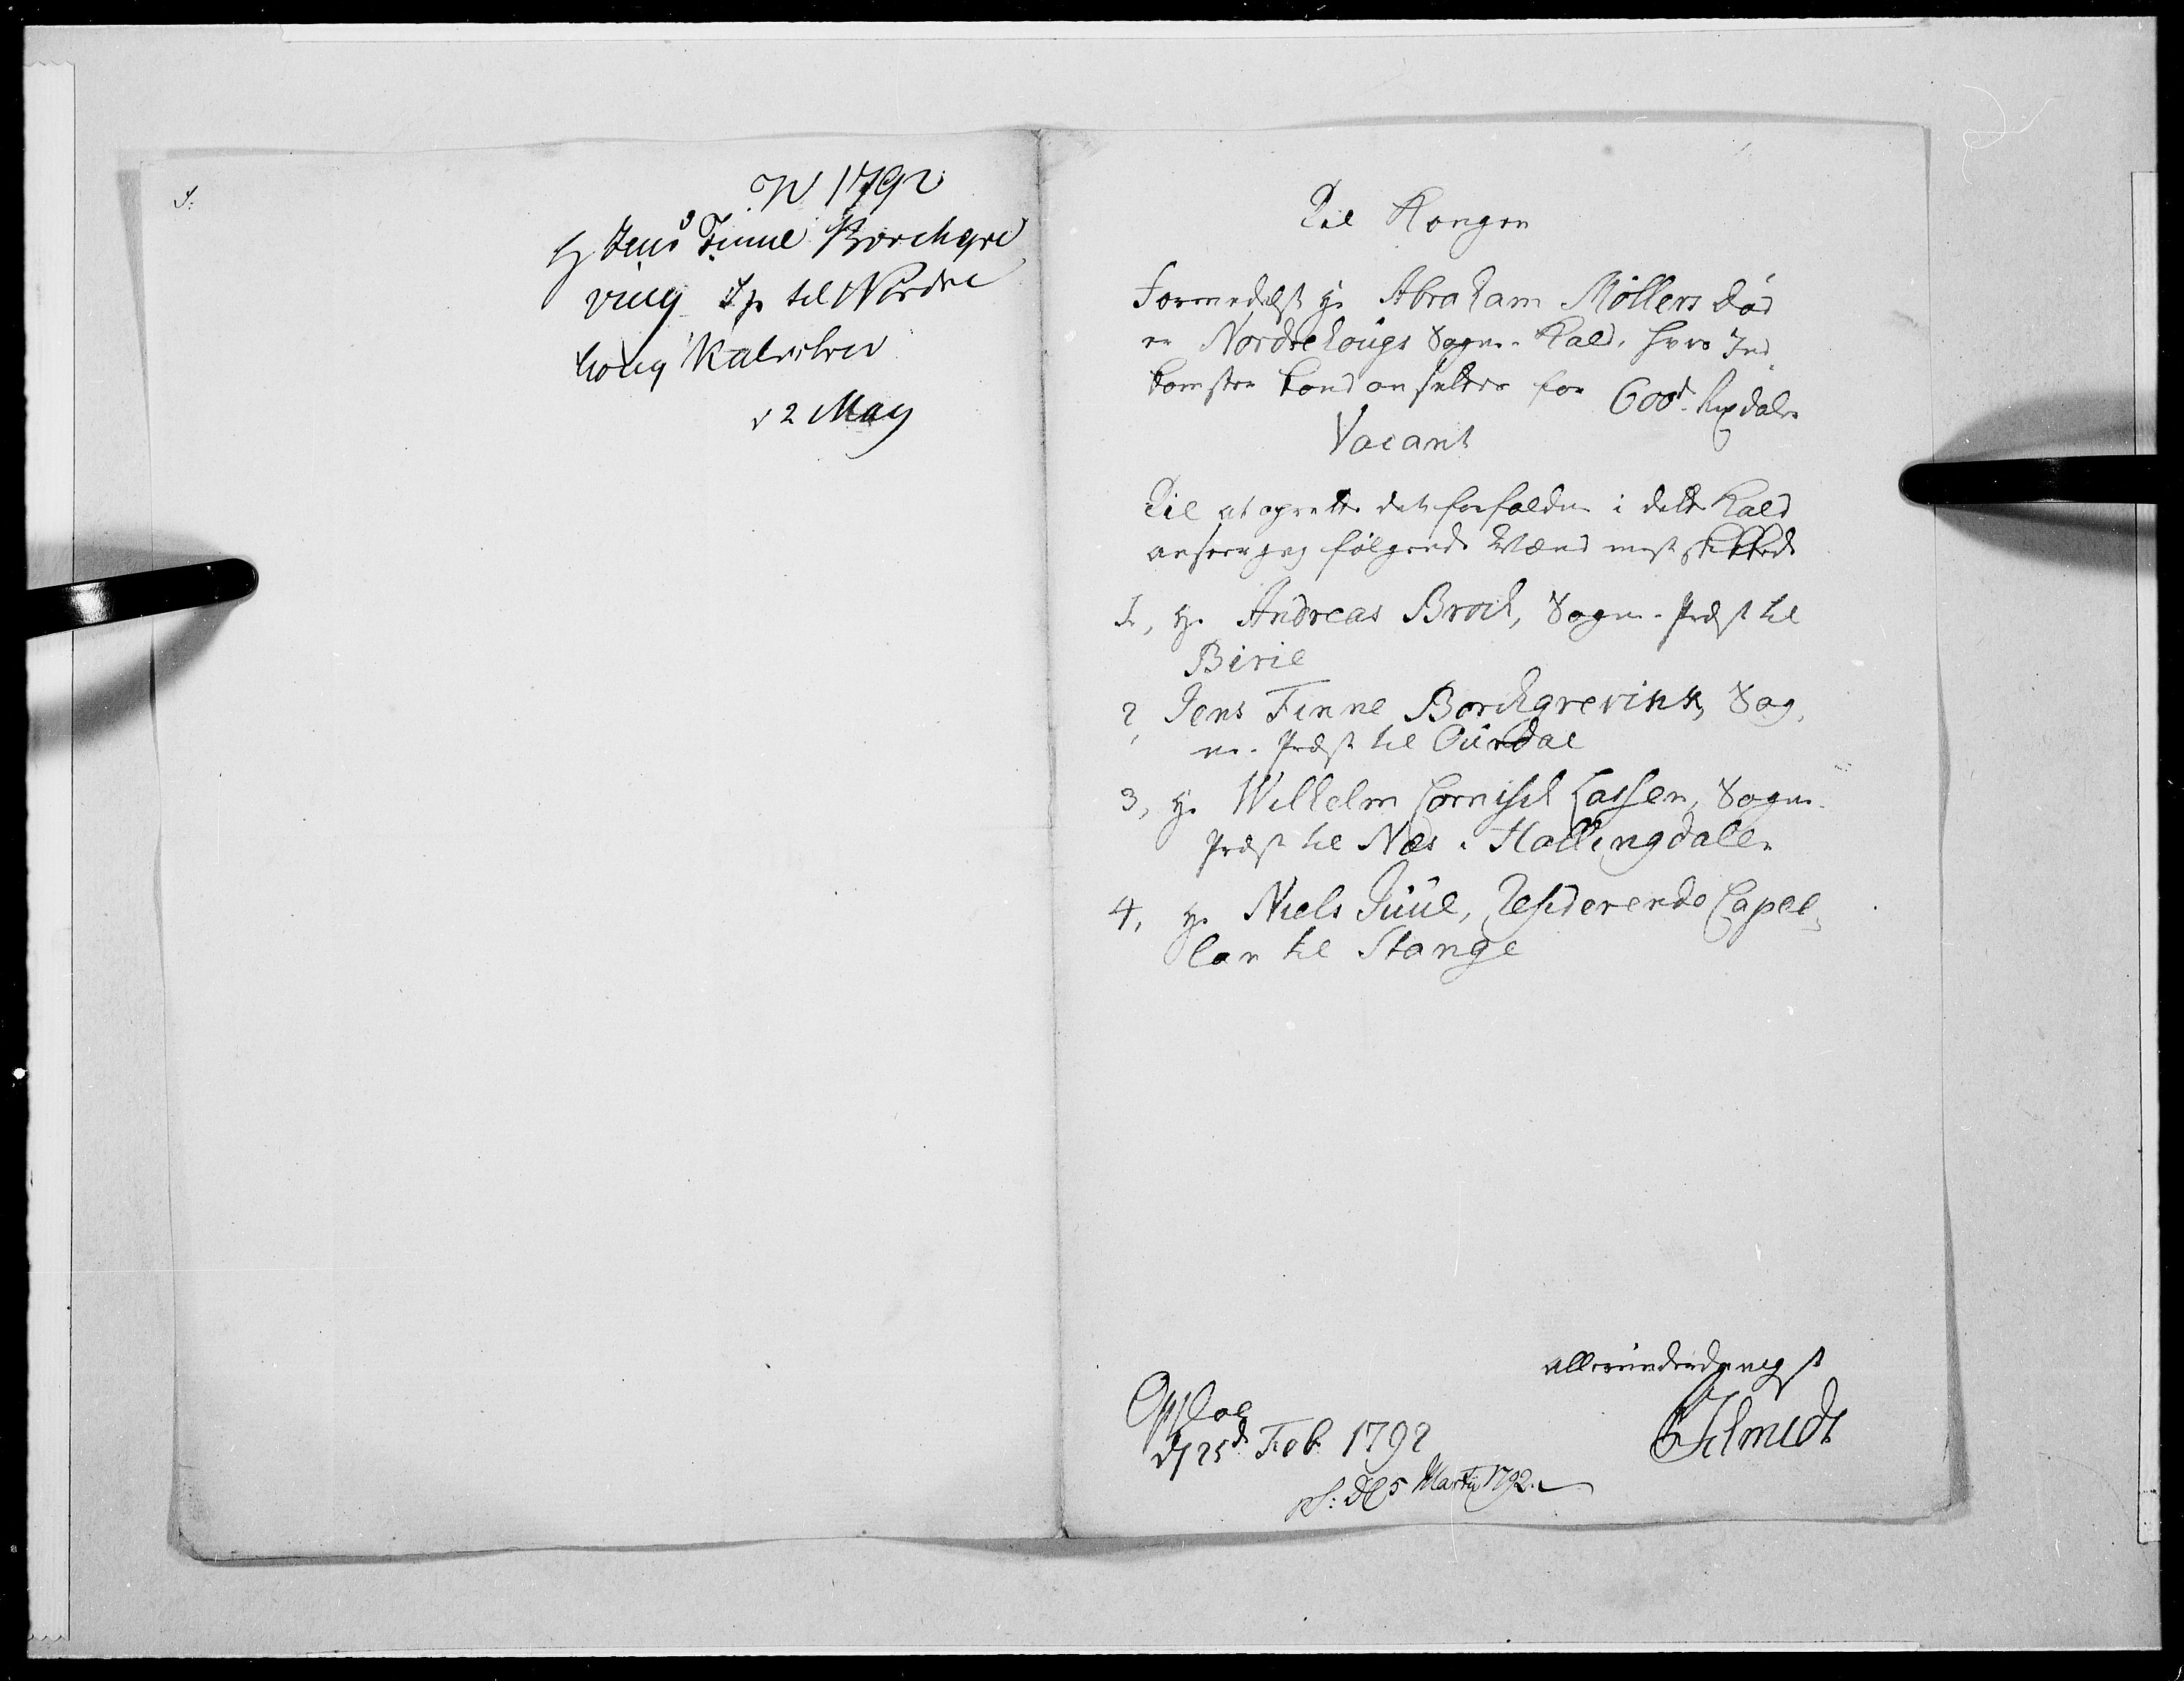 S:
N 1792
H Jens Finne Borchgre
ving Sp til Nordre
houg Kaldelse
12 May
Til Kongen
Formedelst Hr. Abraham Möllers Död
er Nordrehougs Sogne-Kald, hvis Ind
komster kand ansettes for 600d. Rixdaler
Vacant
Til at oprette det forfaldne i dette Kald
anseer jeg fölgende Mænd mest skikkede
1, Hr. Andreas Broch, Sogne-Præst til
Birie
2, Jens Finne Borchgrevink, Sog
ne-Præst til Ourdal
3, Hr. Wilhelm Cornisch Cassen, Sogne-
Præst til Næs i Hallingdalen
4, Hr. Niels Juul, Residerende Capel
lan til Stange
allerunderdanigst
Opsloe
d 25de Feb. 1792
Schmidt
ps: d 5 Martii 1792.